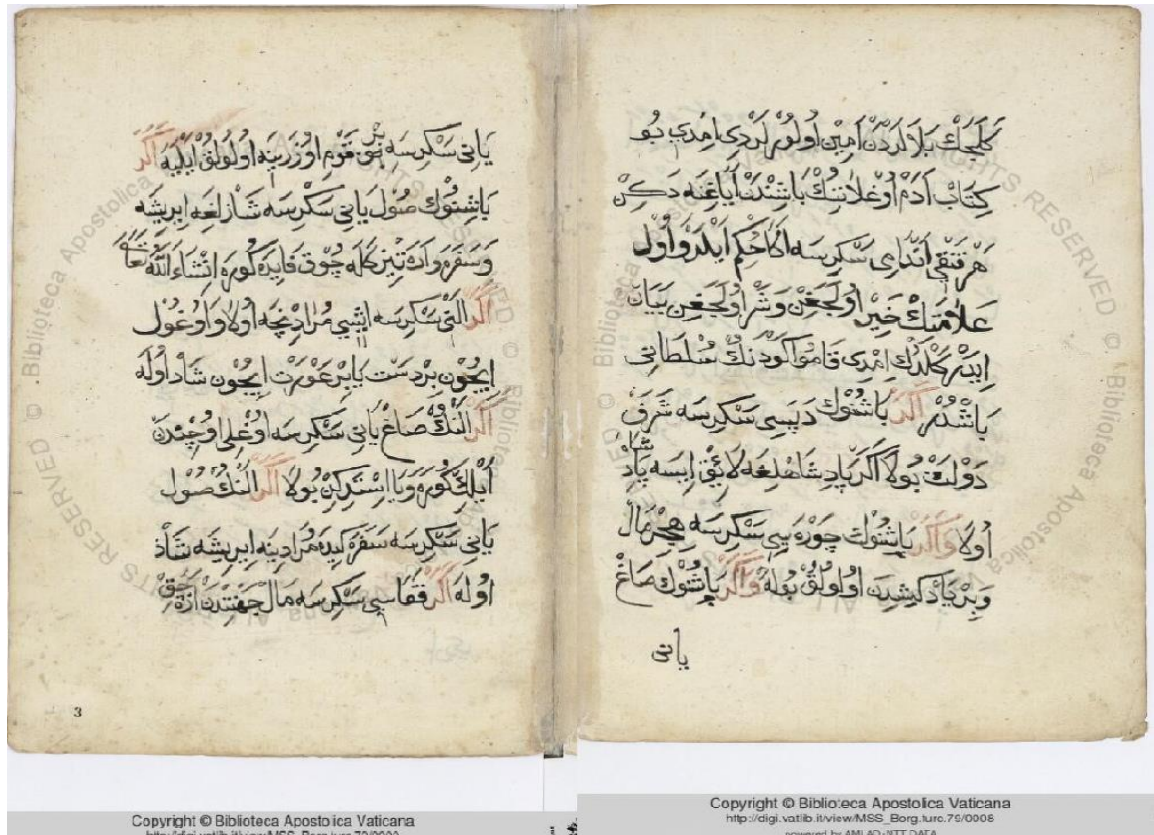 كلجك بلالردن امين اولورلردى امدى بو
كتاب ادم اوغلاننك باشندن اياغنه دكن
هر قنقى اندامى سكرسه اكا حكم ايلدى واول
علامتك خير اولجغن وشر اولجغن بيان
ايدر كلدك امدى قامو كودنك سلطانى
باشدر اكر باشنوك دپسى سكرسه شرف
دولت بولا اكر پادشاهلغه لايق ايسه پادشا
اولا واكر باشنوك چوره سى سكرسه مال
وبر ياد كشيدن اولولق بوله واكر باشنوك صاغ
يانى
يانى سكرسه بر قوم اوزرينه اولولق ايليه اكر
باشنوك صول يانى سكرسه شازلغه ايريشه
وسفره واره تيز كله چوق فايده كوره انشاء الله تعالى
اكر النى سكرسه ايشى مرادنجه اولا واوغول
ايچون بر دست يا بر عورت ايچون شاد اوله
اكر النك صاغ يانى سكرسه اوغلى اوچندن
ايلك كوره ويا استركن بولا اكر النك صول
يانى سكرسه سفره كيده مرادينه ايريشه شاذ
اوله اكر قفاسى سكرسه مال جهتندن
3
Copyright © Biblioteca Apostolica Vaticana
http://digi.vatlib.it/view/MSS_Borg.turc.79/0008
Copyright © Biblioteca Apostolica Vaticana